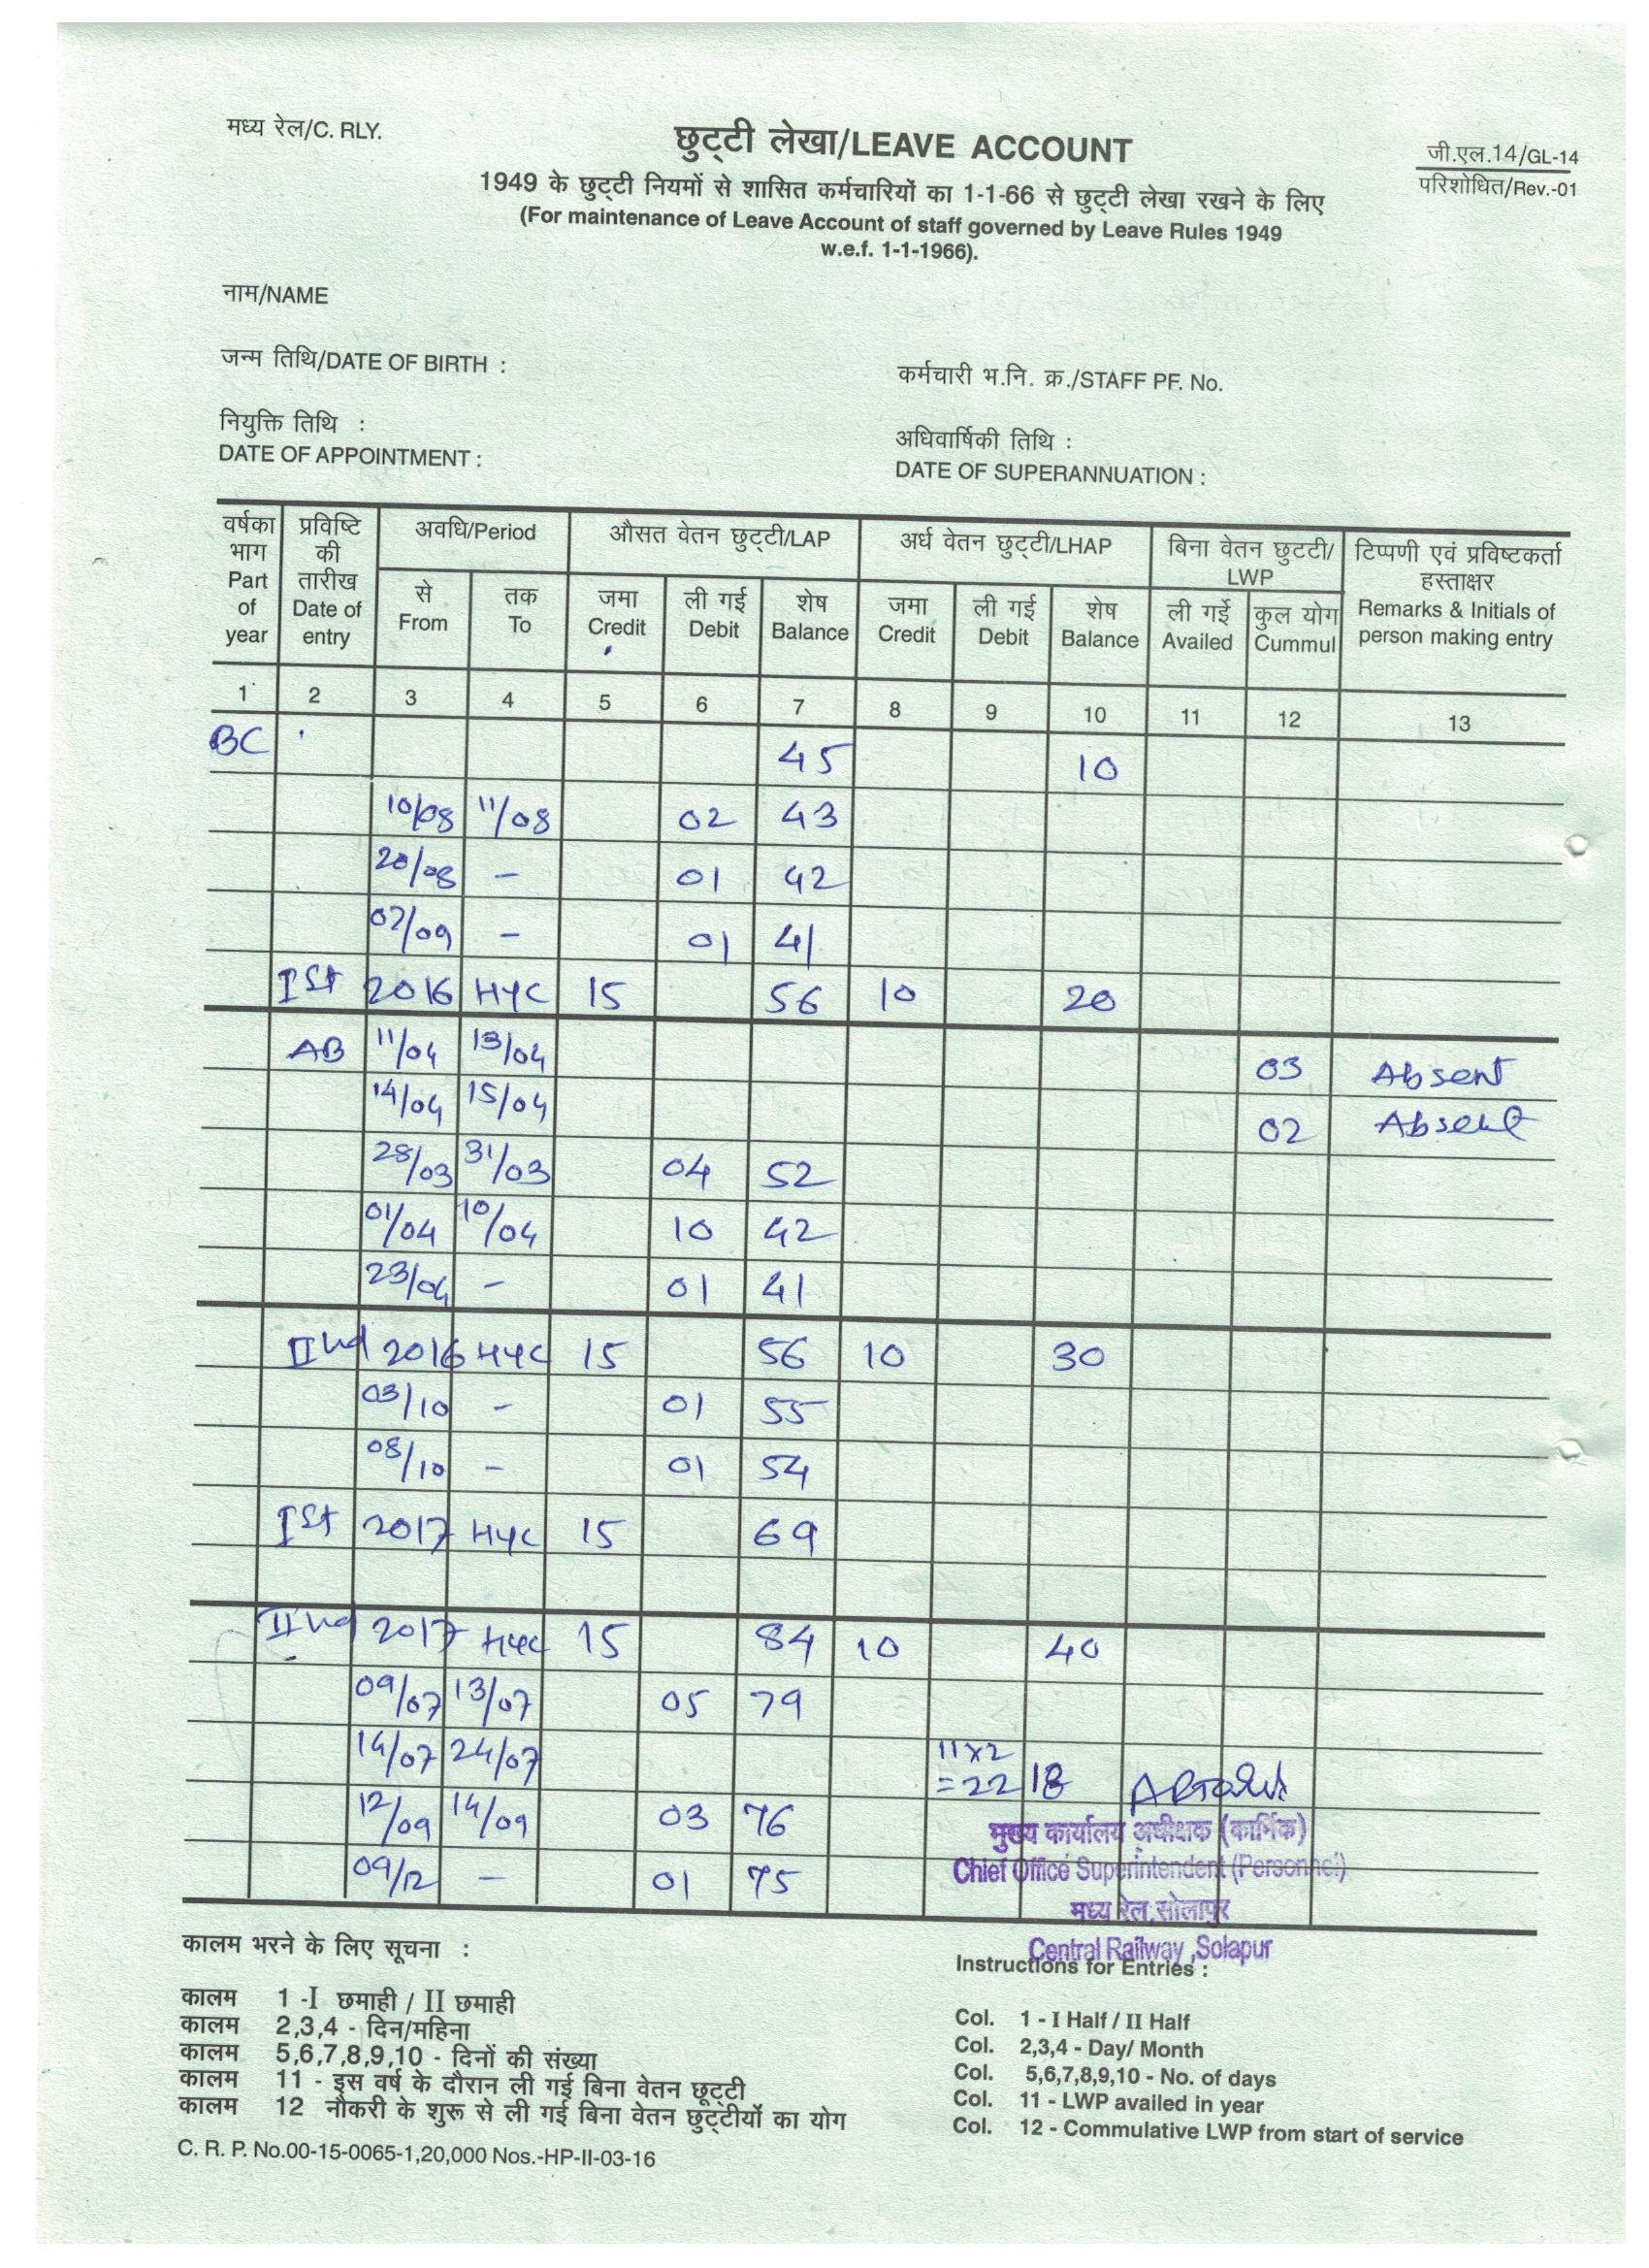 मध्य रेल/C. RLY.
छुट्टी लेखा/LEAVE ACCOUNT
जी.एल.14/GL-14
परिशोधित/Rev.-01
1949 के छुट्टी नियमों से शासित कर्मचारियों का 1-1-66 से छुट्टी लेखा रखने के लिए
(For maintenance of Leave Account of staff governed by Leave Rules 1949
w.e.f. 1-1-1966).
नाम/NAME
जन्म तिथि/DATE OF BIRTH :
कर्मचारी भ.नि. क्र./STAFF PF. No.
नियुक्ति तिथि :
DATE OF APPOINTMENT :
अधिवार्षिकी तिथि :
DATE OF SUPERANNUATION :
वर्षका भाग Part of year
प्रविष्टि की तारीख Date of entry
अवधि/Period
औसत वेतन छुट्टी/LAP
अर्ध वेतन छुट्टी/LHAP
बिना वेतन छुटटी/ LWP
टिप्पणी एवं प्रविष्टकर्ता हस्ताक्षर Remarks & Initials of person making entry
से From
तक To
जमा Credit
ली गई Debit
शेष Balance
जमा Credit
ली गई Debit
शेष Balance
ली गई Availed
कुल योग Cummul
1 2 3 4 5 6 7 8 9 10 11 12 13
BC 45 10
10/08 11/08 02 43
20/08 - 01 42
07/09 - 01 41
Ist 2016 HYC 15 56 10 20
AB 11/04 13/04 03 Absent
14/04 15/04 02 Absent
28/03 31/03 04 52
01/04 10/04 10 42
23/04 - 01 41
IInd 2016 HYC 15 56 10 30
03/10 - 01 55
08/10 - 01 54
Ist 2017 HYC 15 69
IInd 2017 HYC 15 84 10 40
09/07 13/07 05 79
14/07 24/07 11x2 =22 18
12/09 14/09 03 76
09/12 - 01 75
मुख्य कार्यालय अधीक्षक (कार्मिक)
Chief Office Superintendent (Personnel)
मध्य रेल,सोलापुर
Central Railway ,Solapur
कालम भरने के लिए सूचना :
कालम 1 -I छमाही / II छमाही
कालम 2,3,4 - दिन/महिना
कालम 5,6,7,8,9,10 - दिनों की संख्या
कालम 11 - इस वर्ष के दौरान ली गई बिना वेतन छूट्टी
कालम 12 नौकरी के शुरू से ली गई बिना वेतन छुट्टीयों का योग
Instructions for Entries :
Col. 1 - I Half / II Half
Col. 2,3,4 - Day/ Month
Col. 5,6,7,8,9,10 - No. of days
Col. 11 - LWP availed in year
Col. 12 - Commulative LWP from start of service
C. R. P. No.00-15-0065-1,20,000 Nos.-HP-II-03-16